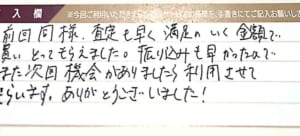 入 欄 ※今回ご利用いただき
手書きにてご記入お願い
前回同様、査定も早く満足のいく金額で
買いとってもらえました。振り込みも早かったので
また次回機会がありましたら利用させて
もらいます。ありがとうございました!